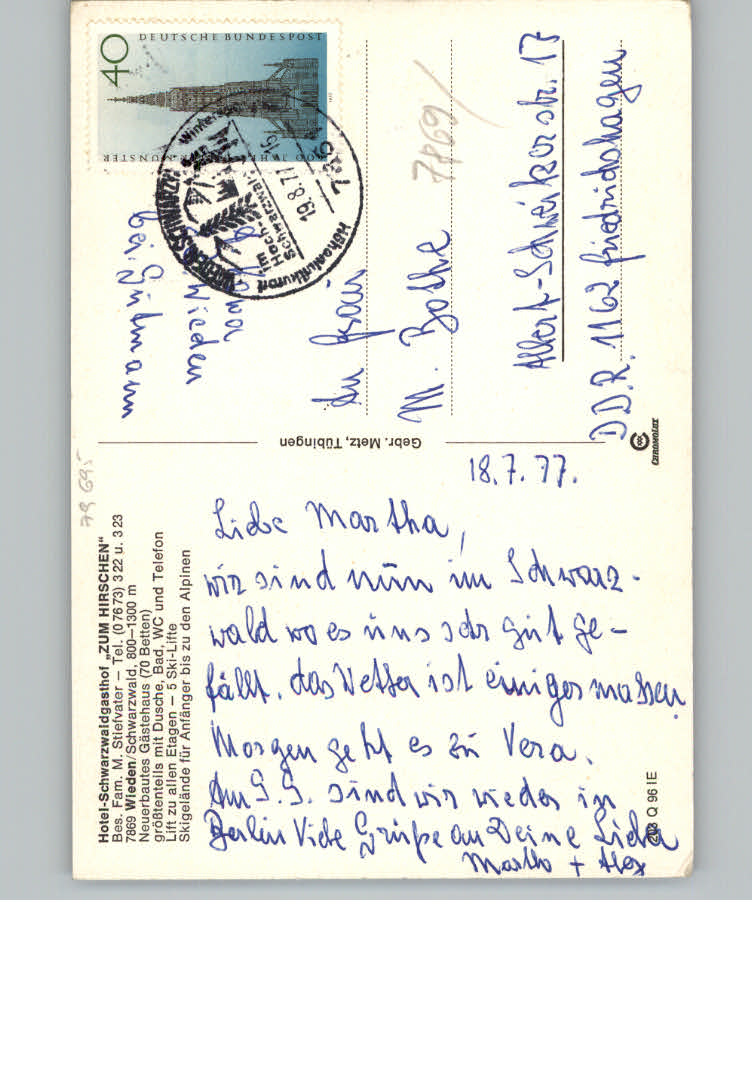 Hotel-Schwarzwaldgasthof „ZUM HIRSCHEN"
Bes. Fam. M. Stiefvater – Tel. (07673) 322 u. 323
7869 Wieden/Schwarzwald, 800–1300 m
Neuerbautes Gästehaus (70 Betten)
größtenteils mit Dusche, Bad, WC und Telefon
Lift zu allen Etagen – 5 Ski-Lifte
Skigelände für Anfänger bis zu den Alpinen
79 695
18.7.77.
Liebe Martha,
wir sind nun im Schwarz-
wald wo es uns sehr gut ge-
fällt. das Wetter ist einigermassen
Morgen geht es zu Vera.
Am 9.9. sind wir wieder in
Berlin Viele Grüße an Deine Lieben
Martha + Alex
203 Q 96 IE
Gebr. Metz, Tübingen
CHROMOLUX
DEUTSCHE BUNDESPOST
40
JAHRE MÜNSTER
7869
19.8.77
Höhenluftkurort
im
Hoch-
schwarzwald
Winter
Wieden
bei Gutmann
7869/
An Frau
M. Bothe
Albert-Schweitzerstr. 17
DDR. 1162 Friedrichshagen